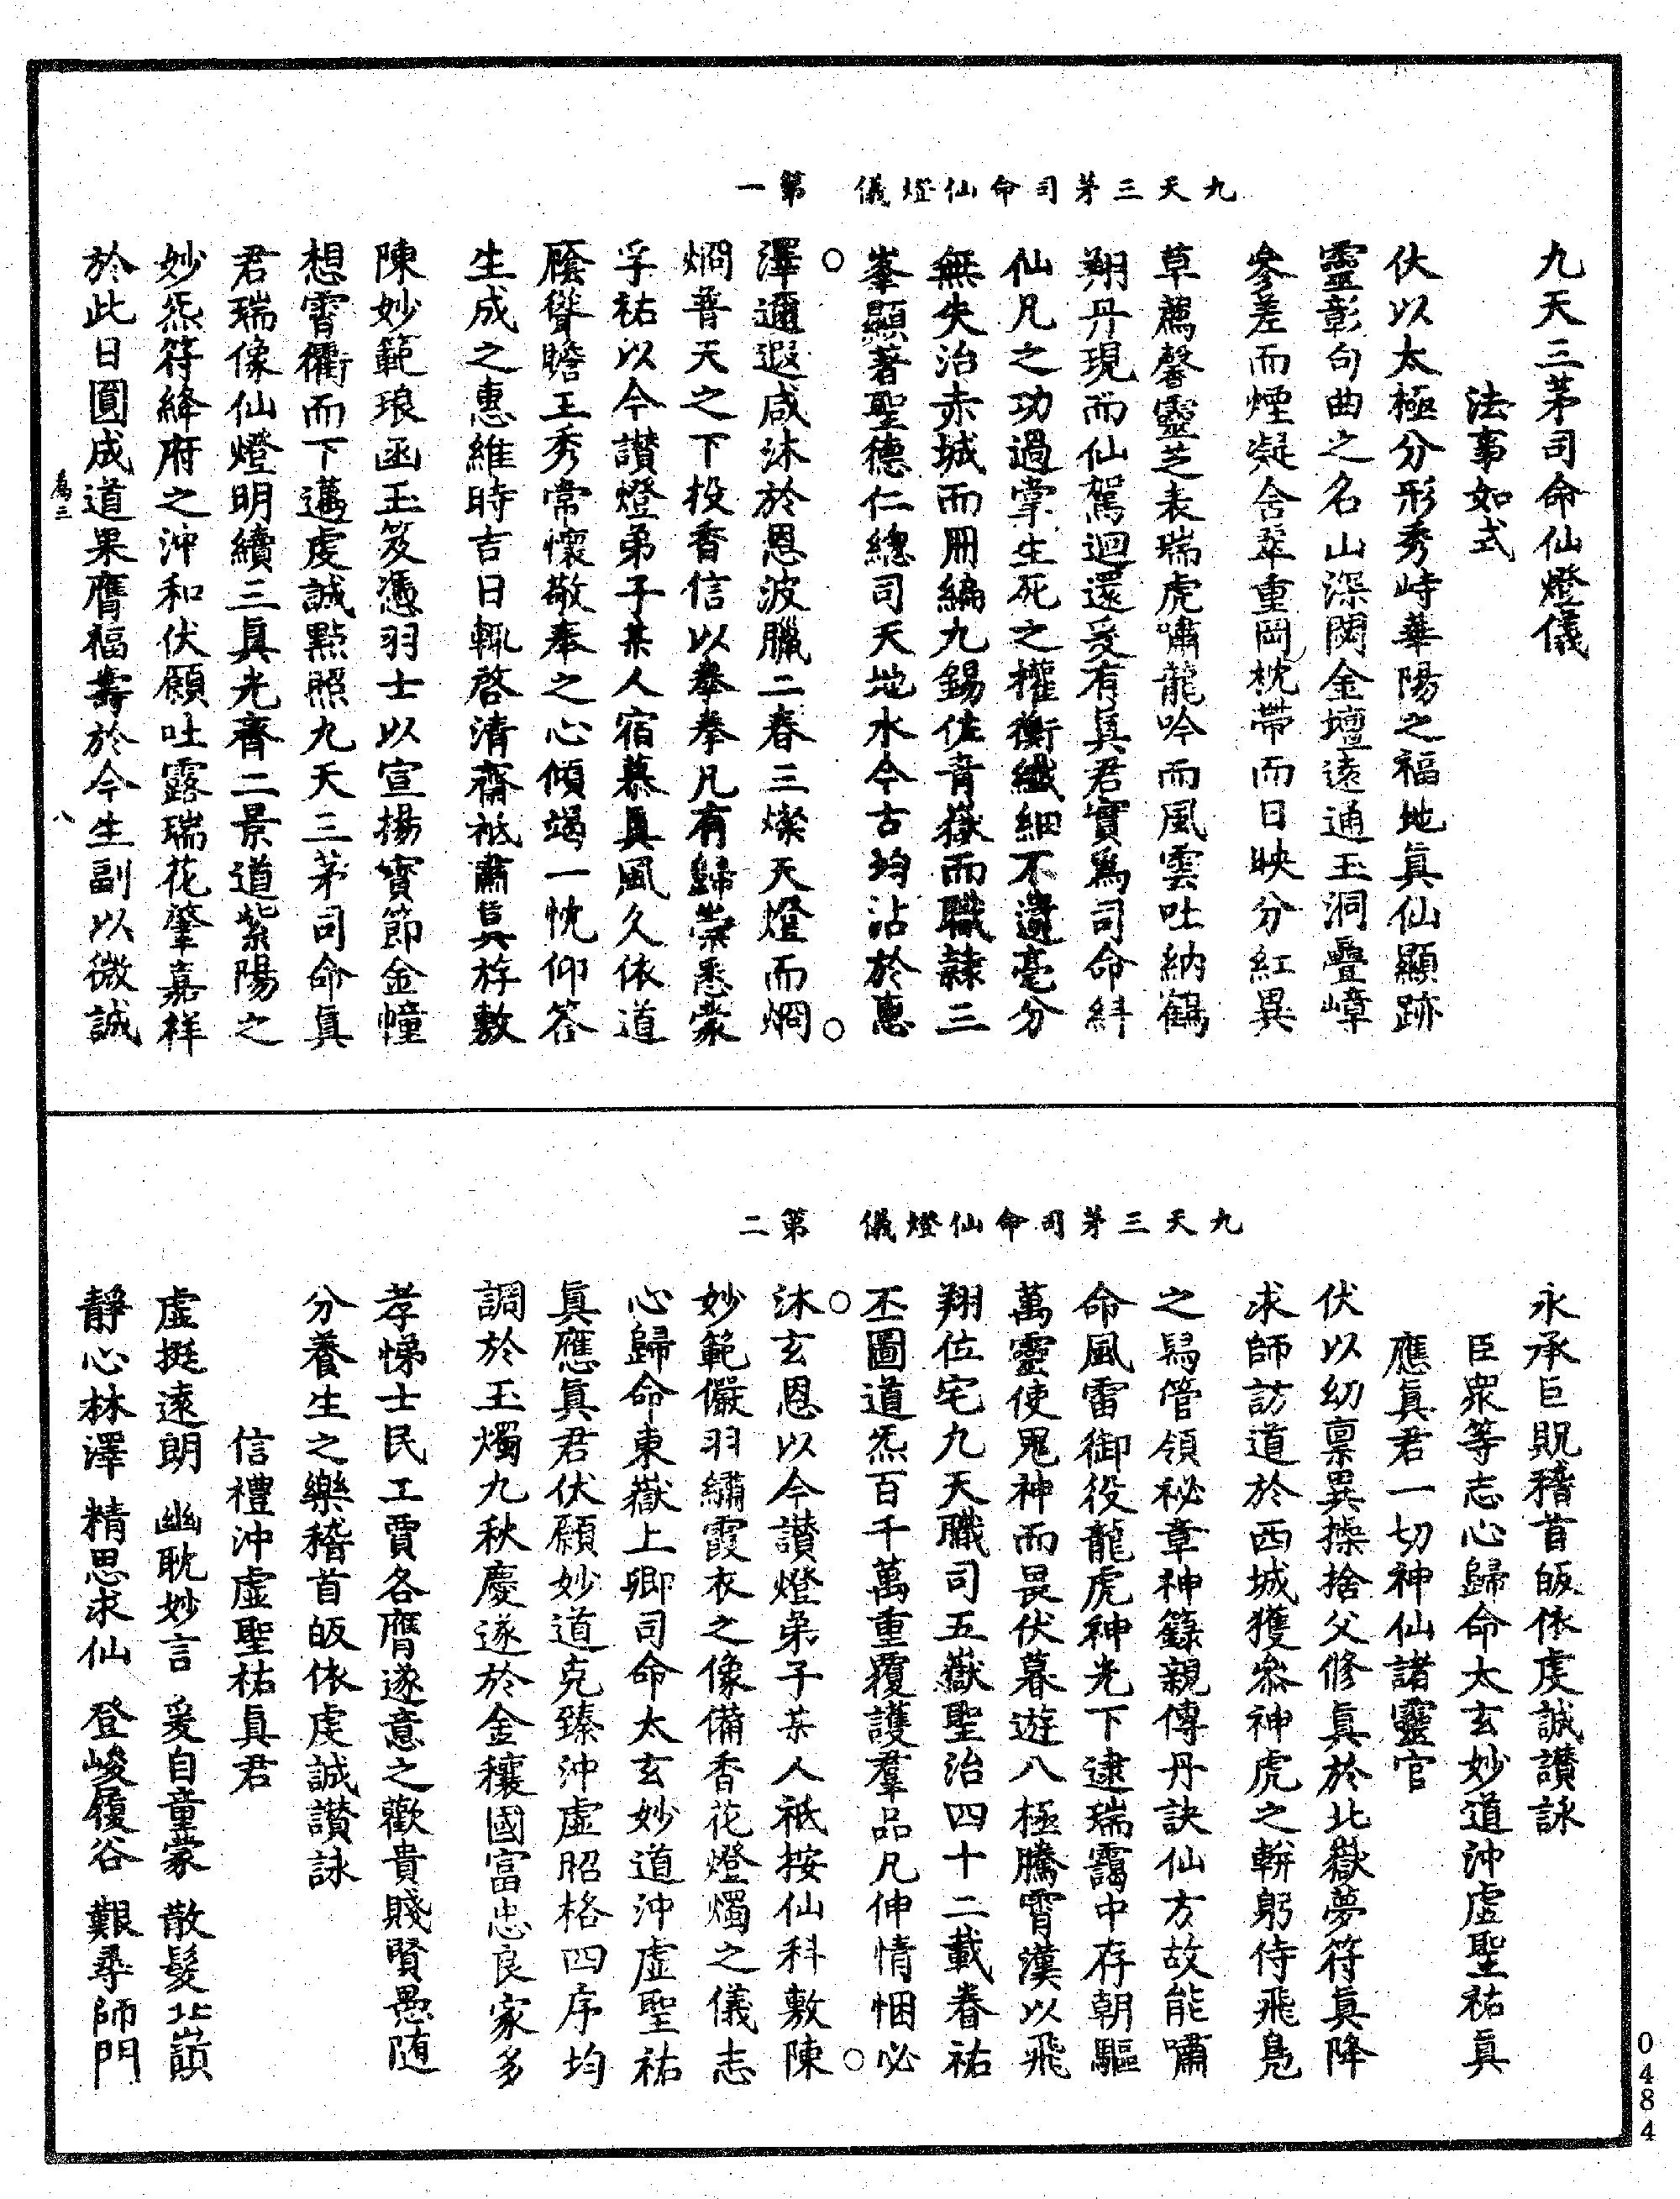 九天三茅司命仙燈儀　第一
九天三茅司命仙燈儀
法事如式
伏以太極分形秀峙華陽之福地真仙顯跡
靈彰句曲之名山深閟金壇遠通玉洞疊嶂
參差而煙凝含翠重岡枕帶而日映分紅異
草薦馨靈芝表瑞虎嘯龍吟而風雲吐納鶴
翔丹現而仙駕迴還爰有真君實為司命糾
仙凡之功過掌生死之權衡纖細不遺毫分
無失治赤城而冊編九錫佐青嶽而職隸三
峯顯著聖德仁總司天地水今古均沾於惠
澤邇遐咸沐於恩波臘二春三燦天燈而烱
烱普天之下投香信以拳拳凡有歸崇悉蒙
孚祐以今讚燈弟子某人宿慕真風久依道
廕聳瞻王秀常懷敬奉之心傾竭一忱仰答
生成之惠維時吉日輒啓清齋祗肅真斿敷
陳妙範琅函玉笈憑羽士以宣揚寶節金幢
想霄衢而下邁虔誠點照九天三茅司命真
君瑞像仙燈明續三真光齊二景道紫陽之
妙炁符絳府之沖和伏願吐露瑞花肇嘉祥
於此日圓成道果膺福壽於今生副以微誠
為三
八
九天三茅司命仙燈儀　第二
永承巨貺稽首皈依虔誠讚詠
臣眾等志心歸命太玄妙道沖虛聖祐真
應真君一切神仙諸靈官
伏以幼稟異操捨父修真於北嶽夢符真降
求師訪道於西城獲叅神虎之軿躬侍飛鳧
之舄管領祕章神籙親傳丹訣仙方故能嘯
命風雷御役龍虎神光下逮瑞靄中存朝驅
萬靈使鬼神而畏伏暮遊八極騰霄漢以飛
翔位宅九天職司五嶽聖治四十二載眷祐
丕圖道炁百千萬重覆護羣品凡伸情悃必
沐玄恩以今讚燈弟子某人祇按仙科敷陳
妙範儼羽繡霞衣之像備香花燈燭之儀志
心歸命東嶽上卿司命太玄妙道沖虛聖祐
真應真君伏願妙道克臻沖虛昭格四序均
調於玉燭九秋慶遂於金穰國富忠良家多
孝悌士民工賈各膺遂意之歡貴賤賢愚隨
分養生之樂稽首皈依虔誠讚詠
信禮沖虛聖祐真君
虛挺遠朗　幽耽妙言　爰自童蒙　散髮北嶺
靜心林澤　精思求仙　登峻履谷　艱尋師門
0484